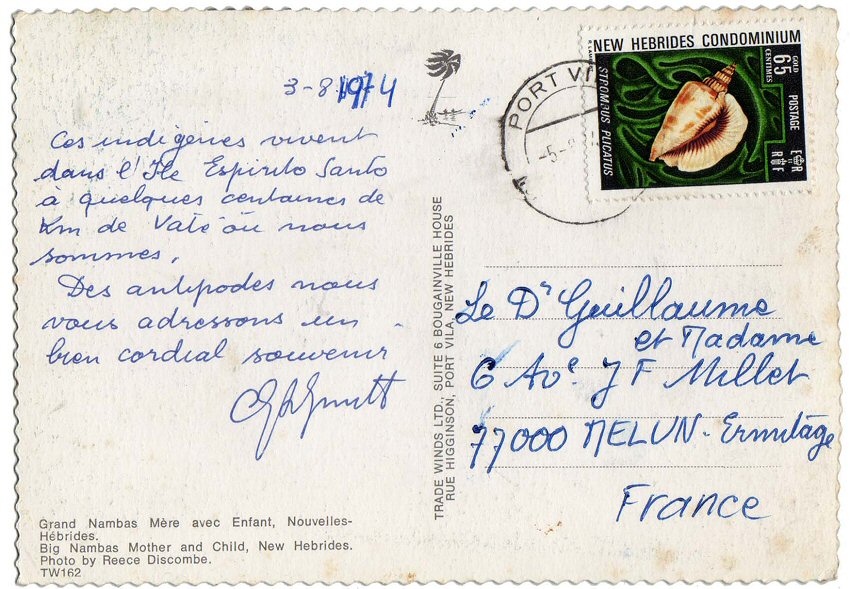 3-8-1974
Ces indigènes vivent
dans l'Ile Espirito Santo
à quelques centaines de
Km de Vaté où nous
sommes.
Des antipodes nous
vous adressons un
bien cordial souvenir
Grand Nambas Mère avec Enfant, Nouvelles-
Hébrides.
Big Nambas Mother and Child, New Hebrides.
Photo by Reece Discombe.
TW162
TRADE WINDS LTD., SUITE 6 BOUGAINVILLE HOUSE
RUE HIGGINSON, PORT VILA, NEW HEBRIDES
PORT VI
-5-
NEW HEBRIDES CONDOMINIUM
65
GOLD
CENTIMES
POSTAGE
E II R
RF
STROMBUS PLICATUS
Le Dr Guillaume
et Madame
6 Ave JF Millet
77000 MELUN-Ermitage
France